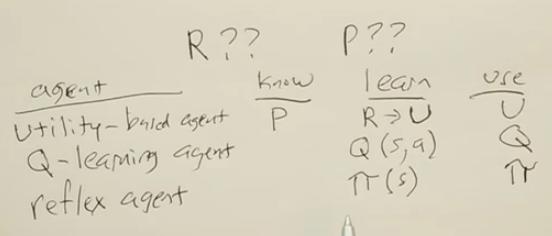 R ?? P ??
agent know learn use
utility-based agent P R → U U
Q-learning agent Q(s,a) Q
reflex agent π(s) π